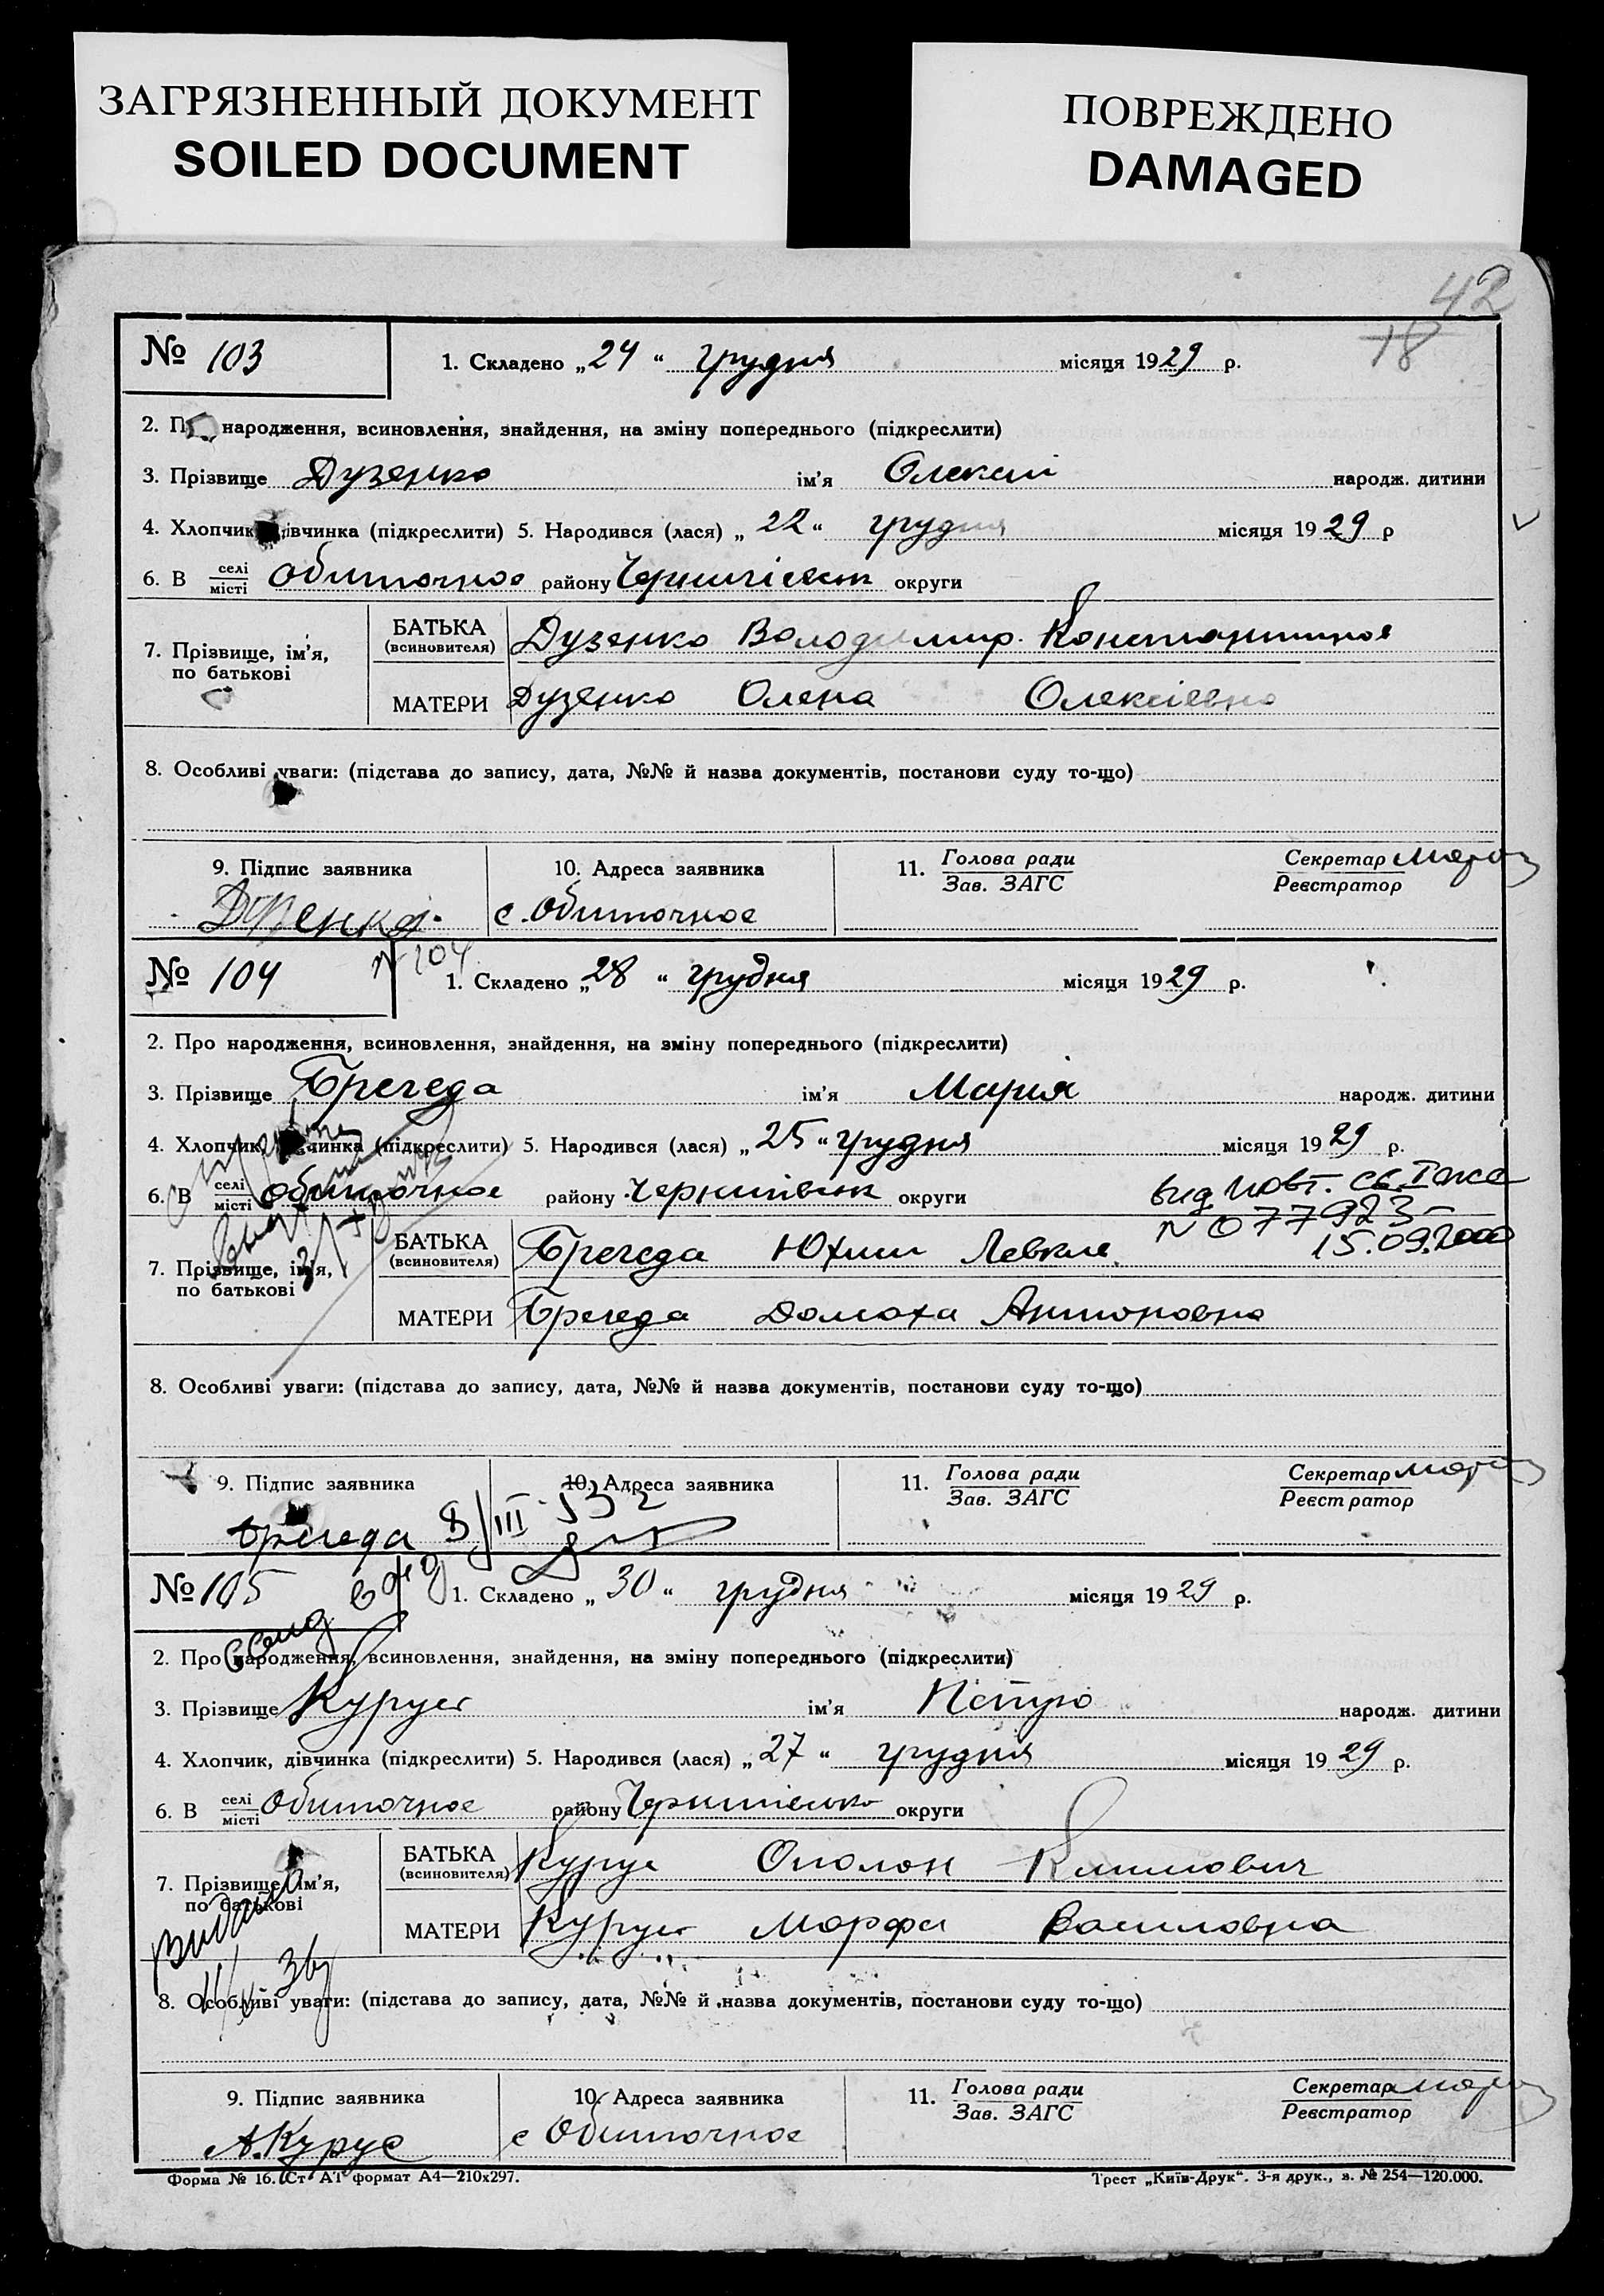 ЗАГРЯЗНЕННЫЙ ДОКУМЕНТ
SOILED DOCUMENT
ПОВРЕЖДЕНО
DAMAGED
42
18
№ 103 1. Складено „24“ грудня місяця 1929 р.
2. П народження, всиновлення, знайдення, на зміну попереднього (підкреслити)
3. Прізвище Дузенко ім'я Олексій народж. дитини
4. Хлопчик івчинка (підкреслити) 5. Народився (лася) „22“ грудня місяця 1929 р
6. В селі місті Обиточное району Чернигівськ округи
7. Прізвище, ім'я, по батькові
БАТЬКА (всиновителя) Дузенко Володимир Константинов
МАТЕРИ Дузенко Олена Олексіевна
8. Особливі уваги: (підстава до запису, дата, №№ й назва документів, постанови суду то-що)
9. Підпис заявника 10. Адреса заявника 11. Голова ради Зав. ЗАГС Секретар Реєстратор
Дузенко с. Обиточное
№ 104 N 104 1. Складено „28“ грудня місяця 1929 р.
2. Про народження, всиновлення, знайдення, на зміну попереднього (підкреслити)
3. Прізвище Бречеда ім'я Мария народж. дитини
4. Хлопчик, чинка (підкреслити) 5. Народився (лася) „25“ грудня місяця 1929 р.
6. В селі місті Обиточное району Чернигівськ округи
вид повт. св.
N 077923
15.09.2000
7. Прізвище, ім'я, по батькові
БАТЬКА (всиновителя) Бречеда Юхим
МАТЕРИ Бречеда Домаха Антоновна
8. Особливі уваги: (підстава до запису, дата, №№ й назва документів, постанови суду то-що)
9. Підпис заявника 10. Адреса заявника 11. Голова ради Зав. ЗАГС Секретар Реєстратор
Бречеда 8/III
№ 105 1. Складено „30“ грудня місяця 1929 р.
2. Про народження, всиновлення, знайдення, на зміну попереднього (підкреслити)
3. Прізвище Курус ім'я Петро народж. дитини
4. Хлопчик, дівчинка (підкреслити) 5. Народився (лася) „27“ грудня місяця 1929 р.
6. В селі місті Обиточное району Чернигівсько округи
7. Прізвище, ім'я, по батькові
БАТЬКА (всиновителя) Курус Ополон Климович
МАТЕРИ Курус Марфа Василовна
Видана
8. Особливі уваги: (підстава до запису, дата, №№ й назва документів, постанови суду то-що)
9. Підпис заявника 10. Адреса заявника 11. Голова ради Зав. ЗАГС Секретар Реєстратор
А. Курус с Обиточное
Форма № 16. Ст АТ формат А4—210х297. Трест „Київ-Друк“. 3-я друк., з. № 254—120.000.